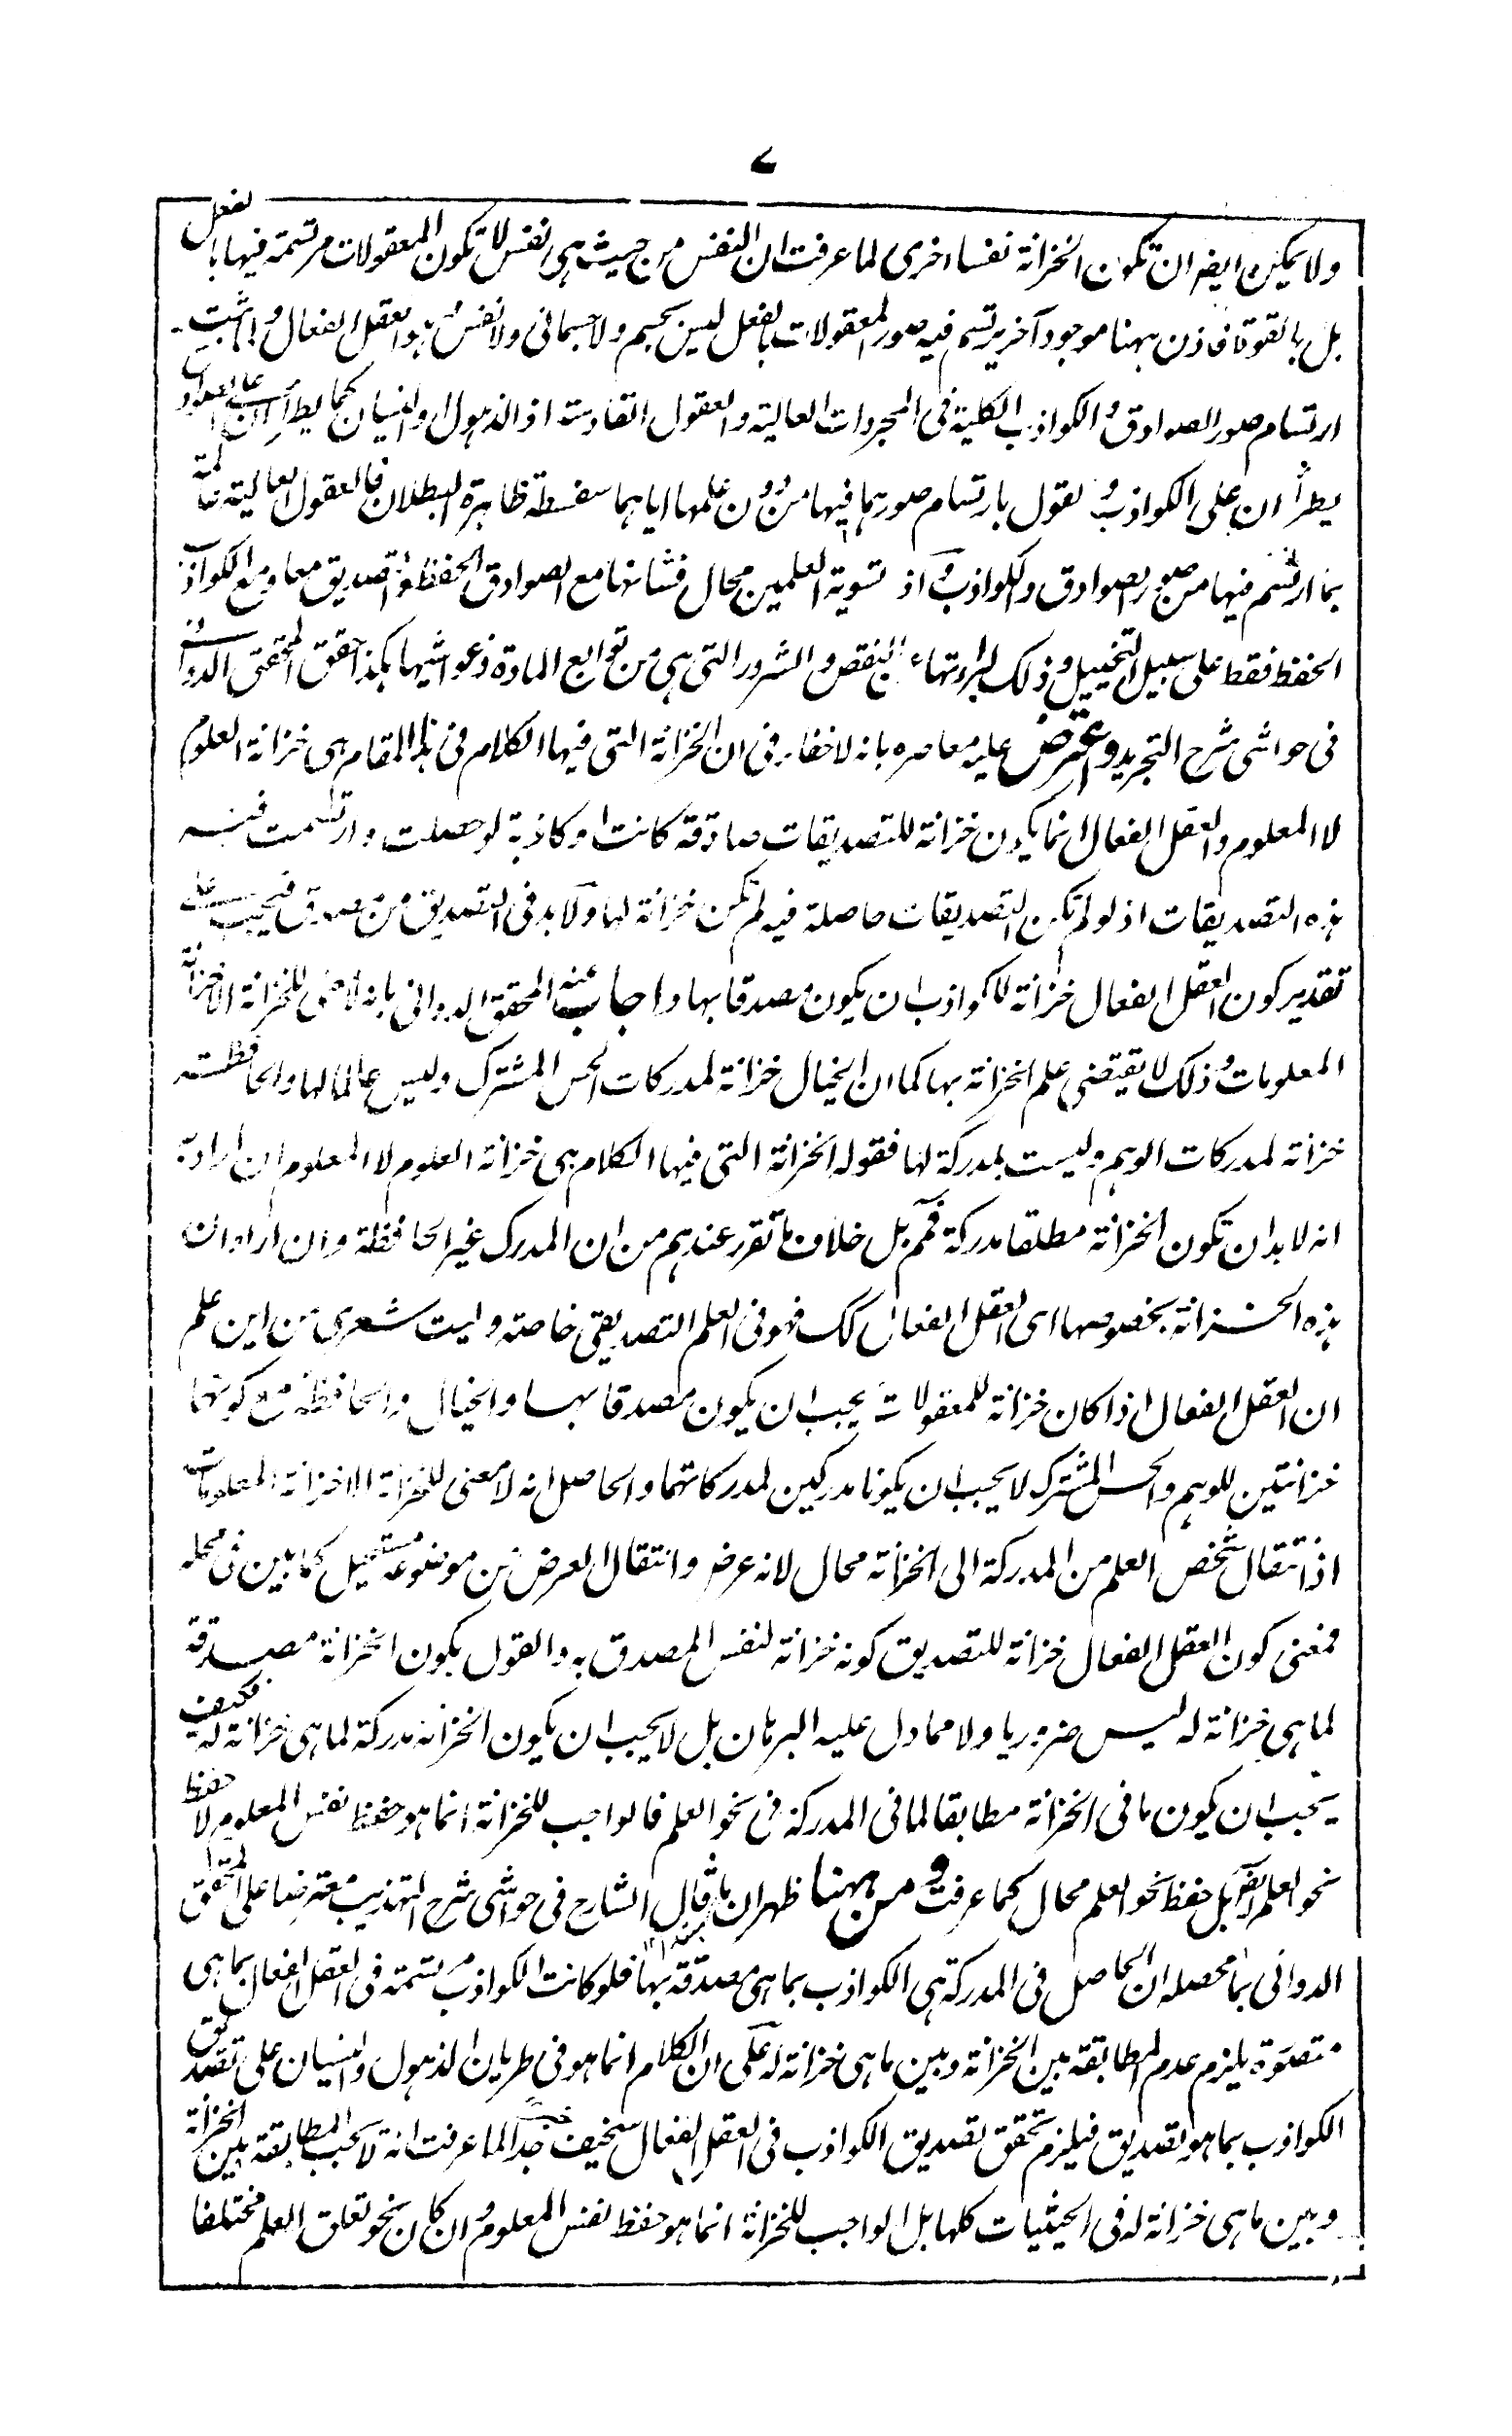 ٧
ولا يمكن ايضا ان تكون الخزانة نفسا اخرى لما عرفت ان النفس من حيث هي نفس لا تكون المعقولات مرتسمة فيها بالفعل
بل بالقوة فاذن ههنا موجود آخر يرتسم فيه صور المعقولات بالفعل ليس بجسم ولا جسماني ولا نفس وهو العقل الفعال و اثبت
ارتسام صور الصوادق والكواذب الكلية في المجردات العالية والعقول القادسة اذ الذهول والنسيان كما يطرأان على الصوادق
يطرأ ان على الكواذب والقول بارتسام صورهما فيها من دون علمها اياهما سفسطة ظاهرة البطلان فالعقول العالية عالمة
بما ارتسم فيها من صور الصوادق والكواذب اذ تسوية العلمين محال فشانها مع الصوادق الحفظ والتصديق معا ومع الكواذب
الحفظ فقط على سبيل التخييل وذلك لبراءتها عن النقص والشرور التي هي من توابع المادة وغواشيها هكذا حقق المحقق الدواني
في حواشي شرح التجريد واعترض عليه معاصره بانه لا خفاء في ان الخزانة التي فيها الكلام في هذا المقام هي خزانة العلوم
لا المعلوم والعقل الفعال انما يكون خزانة للتصديقات صادقة كانت او كاذبة لو حصلت وارتسمت فيه
هذه التصديقات اذ لو لم تكن التصديقات حاصلة فيه لم تكن خزانة لها ولا بد في التصديق من مصدق فيجب على
تقدير كون العقل الفعال خزانة للكواذب ان يكون مصدقا بها واجاب عنه المحقق الدواني بانه لا معنى للخزانة الا خزانة
المعلومات وذلك لا يقتضي علم الخزانة بها كما ان الخيال خزانة لمدركات الحس المشترك وليس عالما لها والحافظة
خزانة لمدركات الوهم وليست بمدركة لها فقوله الخزانة التي فيها الكلام هي خزانة العلوم لا المعلوم ان اراد به
انه لا بد ان تكون الخزانة مطلقا مدركة فمم بل خلاف ما تقرر عندهم من ان المدرك غير الحافظة وان اراد ان
هذه الخزانة بخصوصها اى العقل الفعال كك فهو في العلم التصديقي خاصة وليت شعرى من اين علم
ان العقل الفعال اذا كان خزانة للمعقولات يجب ان يكون مصدقا بها والخيال والحافظة مع كونهما
خزانتين للوهم والحس المشترك لا يجب ان يكونا مدركين لمدركاتهما والحاصل انه لا معنى للخزانة الا خزانة المعلومات
اذ انتقال شخص العلم من المدركة الى الخزانة محال لانه عرض وانتقال العرض عن موضوعه مستحيل كما بين في محله
فمعنى كون العقل الفعال خزانة للتصديق كونه خزانة لنفس المصدق به والقول بكون الخزانة مصدقة
لما هي خزانة له ليس ضروريا ولا مما دل عليه البرهان بل لا يجب ان يكون الخزانة مدركة لما هي خزانة له فكيف
يجب ان يكون ما في الخزانة مطابقا لما في المدركة في نحو العلم فالواجب للخزانة انما هو حفظ نفس المعلوم لا حفظ
نحو العلم ايضا بل حفظ نحو العلم محال كما عرفت ومن ههنا ظهر ان ما قال الشارح في حواشي شرح التهذيب معترضا على المحقق
الدواني بما محصله ان الحاصل في المدركة هي الكواذب بما هي مصدقة بها فلو كانت الكواذب مرتسمة في العقل الفعال بما هي
متصورة يلزم عدم المطابقة بين الخزانة وبين ما هي خزانة له على ان الكلام انما هو في طريان الذهول والنسيان على تصديق
الكواذب بما هو تصديق فيلزم تحقق تصديق الكواذب في العقل الفعال سخيف جدا لما عرفت انه لا يجب المطابقة بين الخزانة
وبين ما هي خزانة له في الحيثيات كلها بل الواجب للخزانة انما هو حفظ نفس المعلوم وان كان نحو تعلق العلم مختلفا